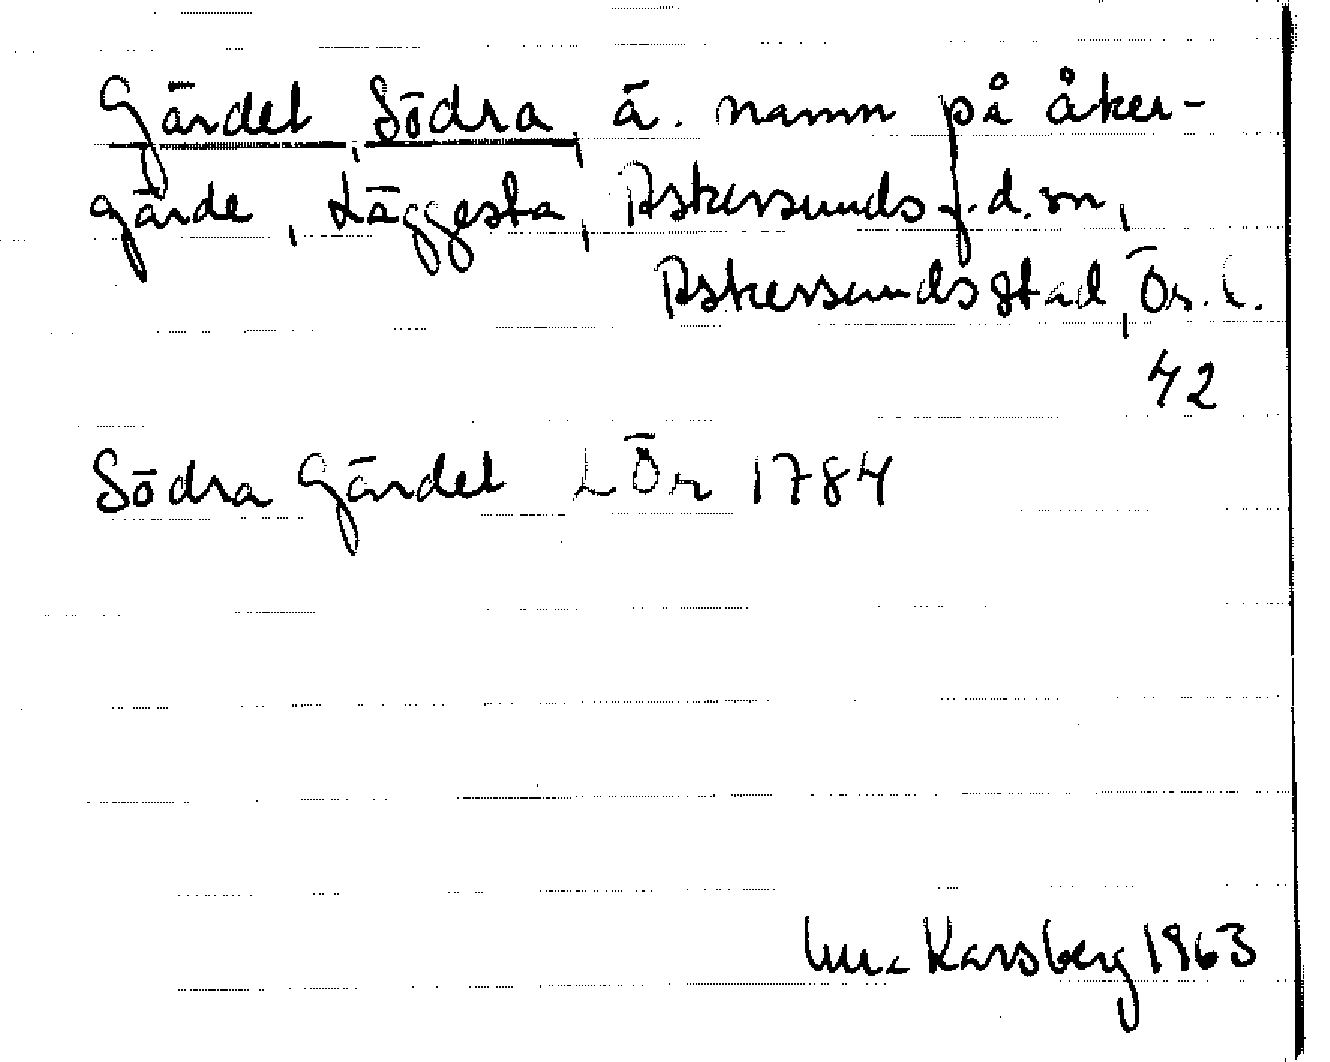 Gärdet, Södra, ä. namn på åker-
gärde, Läggesta, Askersunds f.d. sn,
Askersunds stad, Ör. l.
42
Södra Gärdet LÖr 1784
Karsberg 1963